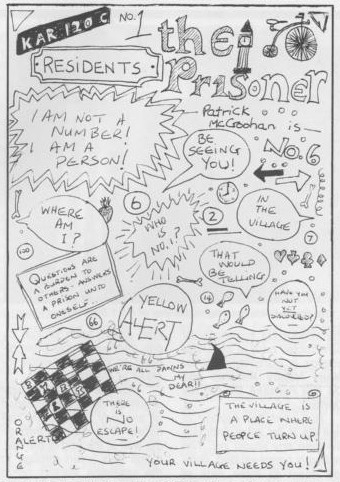 KAR 120 C
NO. 1
the
Prisoner
RESIDENTS
Patrick
McGoohan is
I AM NOT A
NUMBER!
I AM A
PERSON!
BE
SEEING
YOU!
NO. 6
WHERE
AM
I?
6
WHO
IS
NO. 1?
2
IN
THE
VILLAGE
7
100
QUESTIONS ARE
A BURDEN TO
OTHERS: ANSWERS
A PRISON UNTO
ONESELF.
THAT
WOULD
BE
TELLING!
YELLOW
ALERT
HAVE YOU
NOT
YET
DISCOVERED?
66
WE'RE ALL PAWNS
MY
DEAR!!
THERE
IS
NO
ESCAPE!
THE VILLAGE IS
A PLACE WHERE
PEOPLE TURN UP.
ORANGE
ALERT
YOUR VILLAGE NEEDS YOU!